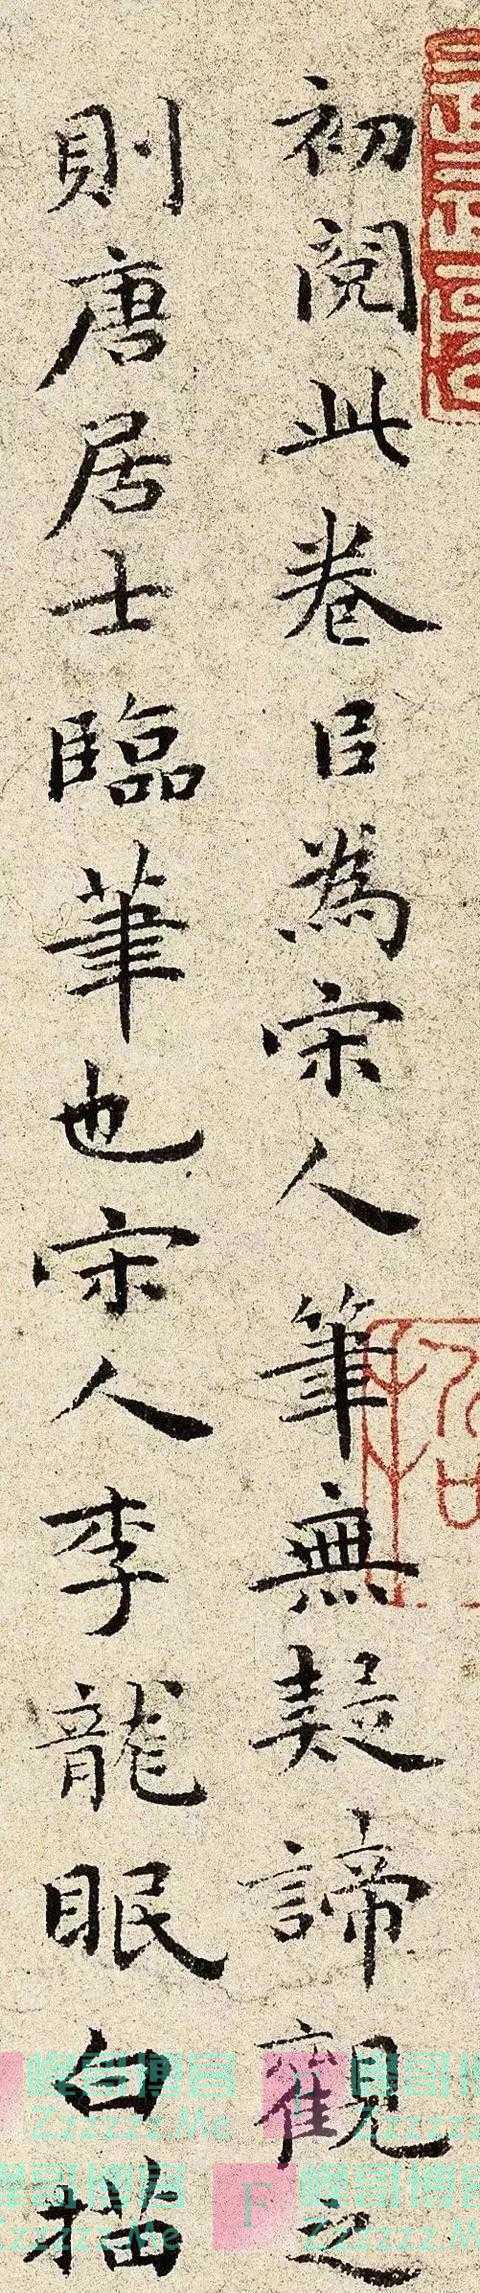 初閱此卷㠯為宋人筆無疑諦觀之
則唐居士臨筆也宋人李龍眠白描
Zzzzzz.Me
Zzzzzz.Me
F